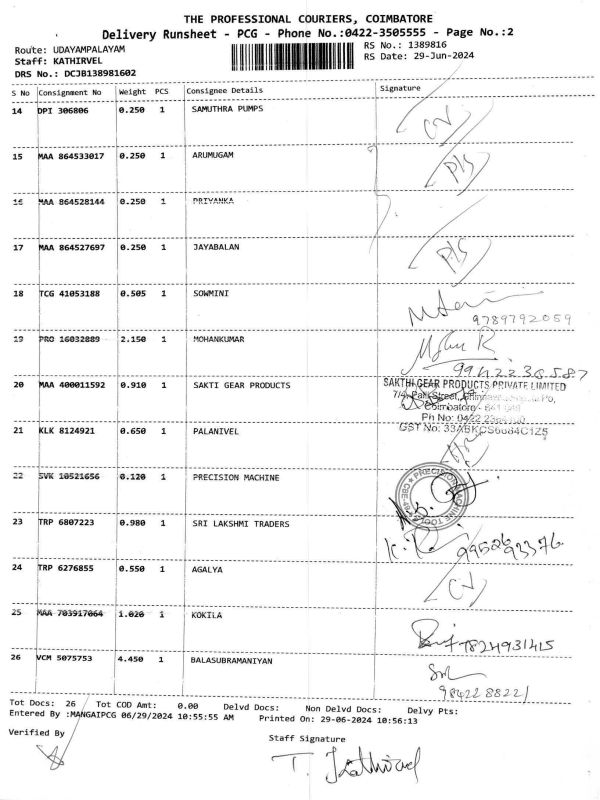 THE PROFESSIONAL COURIERS, COIMBATORE
Delivery Runsheet - PCG - Phone No.:0422-3505555 - Page No.:2
Route: UDAYAMPALAYAM RS No.: 1389816
Staff: KATHIRVEL RS Date: 29-Jun-2024
DRS No.: DCJB138981602
S No Consignment No Weight PCS Consignee Details Signature
14 DPI 306806 0.250 1 SAMUTHRA PUMPS
15 MAA 864533017 0.250 1 ARUMUGAM P/s
16 MAA 864528144 0.250 1 PRIYANKA
17 MAA 864527697 0.250 1 JAYABALAN P/s
18 TCG 41053188 0.505 1 SOWMINI
9789792059
19 PRO 16032889 2.150 1 MOHANKUMAR
9942236587
20 MAA 400011592 0.910 1 SAKTI GEAR PRODUCTS SAKTHI GEAR PRODUCTS PRIVATE LIMITED
Coimbatore
Ph No: 0422
GST No: 33ABKCS6684C1Z5
21 KLK 8124921 0.650 1 PALANIVEL
22 SVK 10521656 0.120 1 PRECISION MACHINE PRECISION MACHINE TOOLS
23 TRP 6807223 0.980 1 SRI LAKSHMI TRADERS
9952693376
24 TRP 6276855 0.550 1 AGALYA
25 MAA 703917064 1.020 1 KOKILA
7824931415
26 VCM 5075753 4.450 1 BALASUBRAMANIYAN
9842288221
Tot Docs: 26 Tot COD Amt: 0.00 Delvd Docs: Non Delvd Docs: Delvy Pts:
Entered By :MANGAIPCG 06/29/2024 10:55:55 AM Printed On: 29-06-2024 10:56:13
Verified By Staff Signature
T. Kathirvel